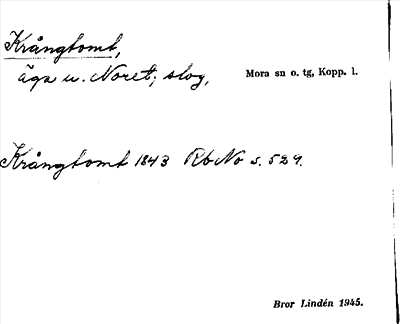 Krångtomt,
äga u. Noret; slog,
Mora sn o. tg, Kopp. l.
Krångtomt 1843 RbNo s. 529.
Bror Lindén 1945.